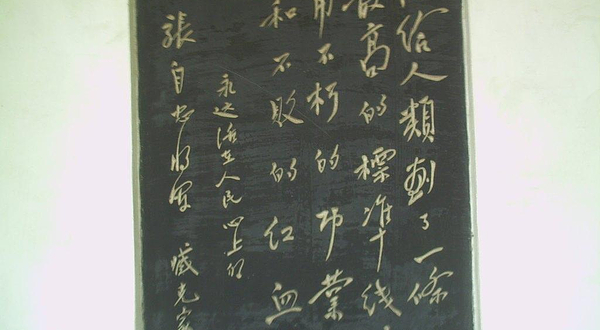 给人類劃了一條
最高的標准线
用不朽的功業
和不敗的红血
永远活在人民心上的
張自忠将军 臧克家